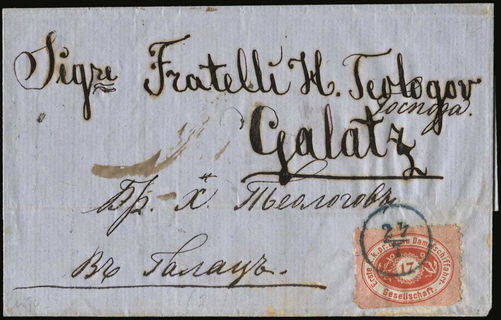 Sigri Fratelli H. Teologov
Господа.
Galatz
Бр. Х. Теологовъ
Въ Галацъ.
27
7
17
Erste k.k. pr. Donau Dampfschiffahrt
Gesellschaft